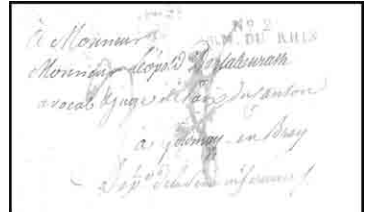 à Monsieur
No 2
ARM. DU RHIN
Monsieur Léopold
avocat & juge de paix du canton
à gournay en Bray
Dépt de la Seine inférieure